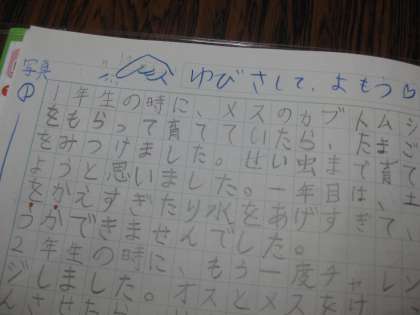 ゆびさして、よもう
写真
①
1年生の時に、メスのカブトムシ
をもらって育てていたら、たまご
をみつけました。せい虫まで育て
ようと思いました。一年目は、土
をかえすぎたり水をあげすぎて、
うかができませんでした。
2年生の時に、もう一度チャレン
ジしました。オスとメスを